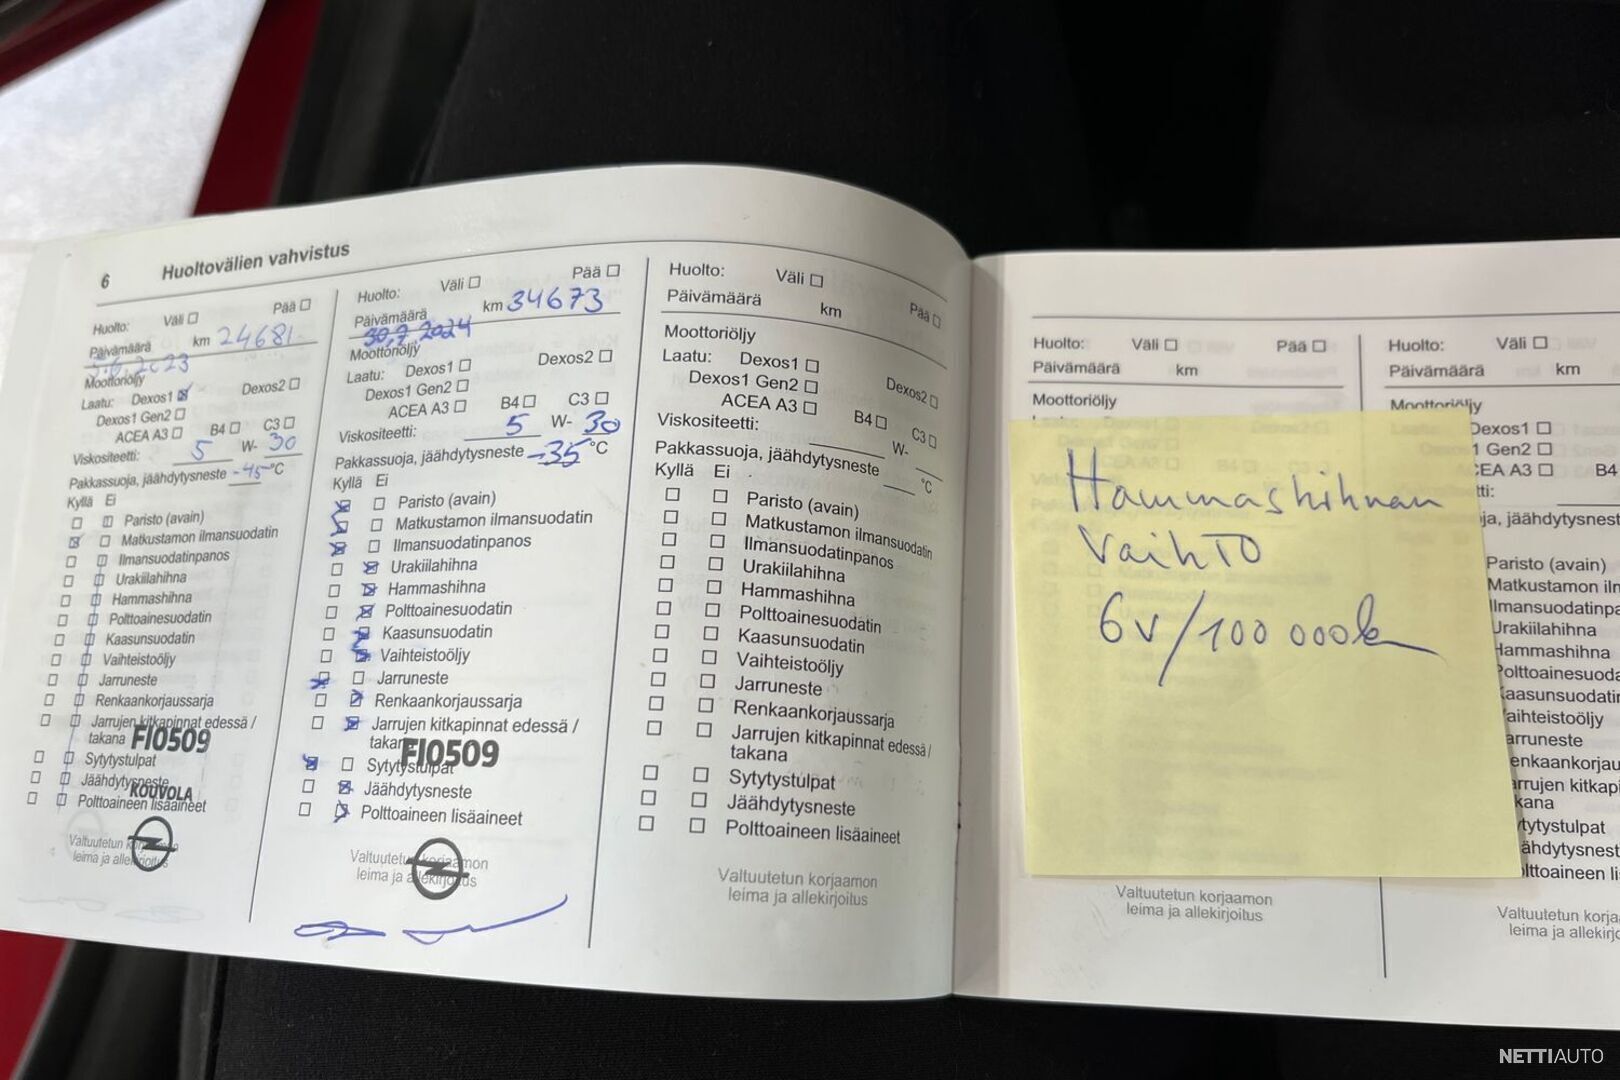 6 Huoltovälien vahvistus
Huolto: Väli Pää
Päivämäärä km 24681
5.6.2023
Moottoriöljy
Laatu: Dexos1 Dexos2
Dexos1 Gen2
ACEA A3 B4 C3
Viskositeetti: 5 W- 30
Pakkassuoja, jäähdytysneste -45 °C
Kyllä Ei
Paristo (avain)
Matkustamon ilmansuodatin
Ilmansuodatinpanos
Urakiilahihna
Hammashihna
Polttoainesuodatin
Kaasunsuodatin
Vaihteistoöljy
Jarruneste
Renkaankorjaussarja
Jarrujen kitkapinnat edessä /
takana FI0509
Sytytystulpat
Jäähdytysneste
KOUVOLA
Polttoaineen lisäaineet
Valtuutetun korjaamon
leima ja allekirjoitus
Huolto: Väli Pää
Päivämäärä km 34673
30.7.2024
Moottoriöljy
Laatu: Dexos1 Dexos2
Dexos1 Gen2
ACEA A3 B4 C3
Viskositeetti: 5 W- 30
Pakkassuoja, jäähdytysneste -35 °C
Kyllä Ei
Paristo (avain)
Matkustamon ilmansuodatin
Ilmansuodatinpanos
Urakiilahihna
Hammashihna
Polttoainesuodatin
Kaasunsuodatin
Vaihteistoöljy
Jarruneste
Renkaankorjaussarja
Jarrujen kitkapinnat edessä /
takana FI0509
Sytytystulpat
Jäähdytysneste
Polttoaineen lisäaineet
Valtuutetun korjaamon
leima ja allekirjoitus
Huolto: Väli Pää
Päivämäärä km
Moottoriöljy
Laatu: Dexos1 Dexos2
Dexos1 Gen2
ACEA A3 B4 C3
Viskositeetti: W-
Pakkassuoja, jäähdytysneste °C
Kyllä Ei
Paristo (avain)
Matkustamon ilmansuodatin
Ilmansuodatinpanos
Urakiilahihna
Hammashihna
Polttoainesuodatin
Kaasunsuodatin
Vaihteistoöljy
Jarruneste
Renkaankorjaussarja
Jarrujen kitkapinnat edessä /
takana
Sytytystulpat
Jäähdytysneste
Polttoaineen lisäaineet
Valtuutetun korjaamon
leima ja allekirjoitus
Huolto: Väli Pää
Päivämäärä km
Moottoriöljy
Hammashihnan
vaihto
6v/100 000k
Valtuutetun korjaamon
leima ja allekirjoitus
Huolto: Väli
Päivämäärä km
Moottoriöljy
Dexos1
1 Gen2
CEA A3 B
tti:
ja, jäähdytysnest
Paristo (avain)
Matkustamon iln
Ilmansuodatinpa
Urakiilahihna
Hammashihna
Polttoainesuoda
Kaasunsuodatin
aihteistoöljy
arruneste
enkaankorjau
arrujen kitkap
kana
ytytystulpat
ähdytysnest
olttoaineen li
Valtuutetun korja
leima ja allekirjo
NETTIAUTO